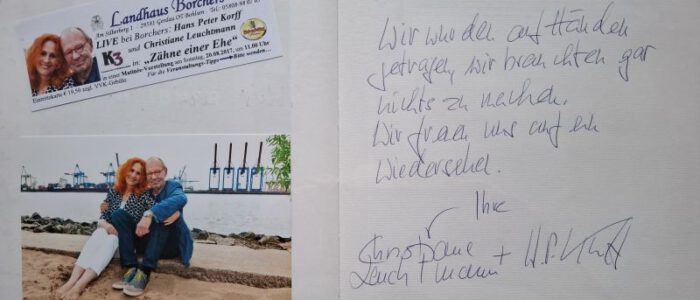 Landhaus Borchers
Am Silberberg 1 - 29581 Gerdau OT Bohlsen - Tel. 05808-
LIVE bei Borchers: Hans Peter Korff
K3... und Christiane Leuchtmann
in: "Zähne einer Ehe"
in einer Matinée-Vorstellung am Sonntag, 20.08.2017, um 11.00 Uhr
Für die Veranstaltungs-Tipps Bitte wenden...
Eintrittskarte € 19,50 zzgl. VVK-Gebühr
Wir wurden auf Händen
getragen, wir brauchten gar
nichts zu machen.
Wir freuen uns auf ein
Wiedersehen.
Ihre
Christiane
Leuchtmann + H.P. Korff